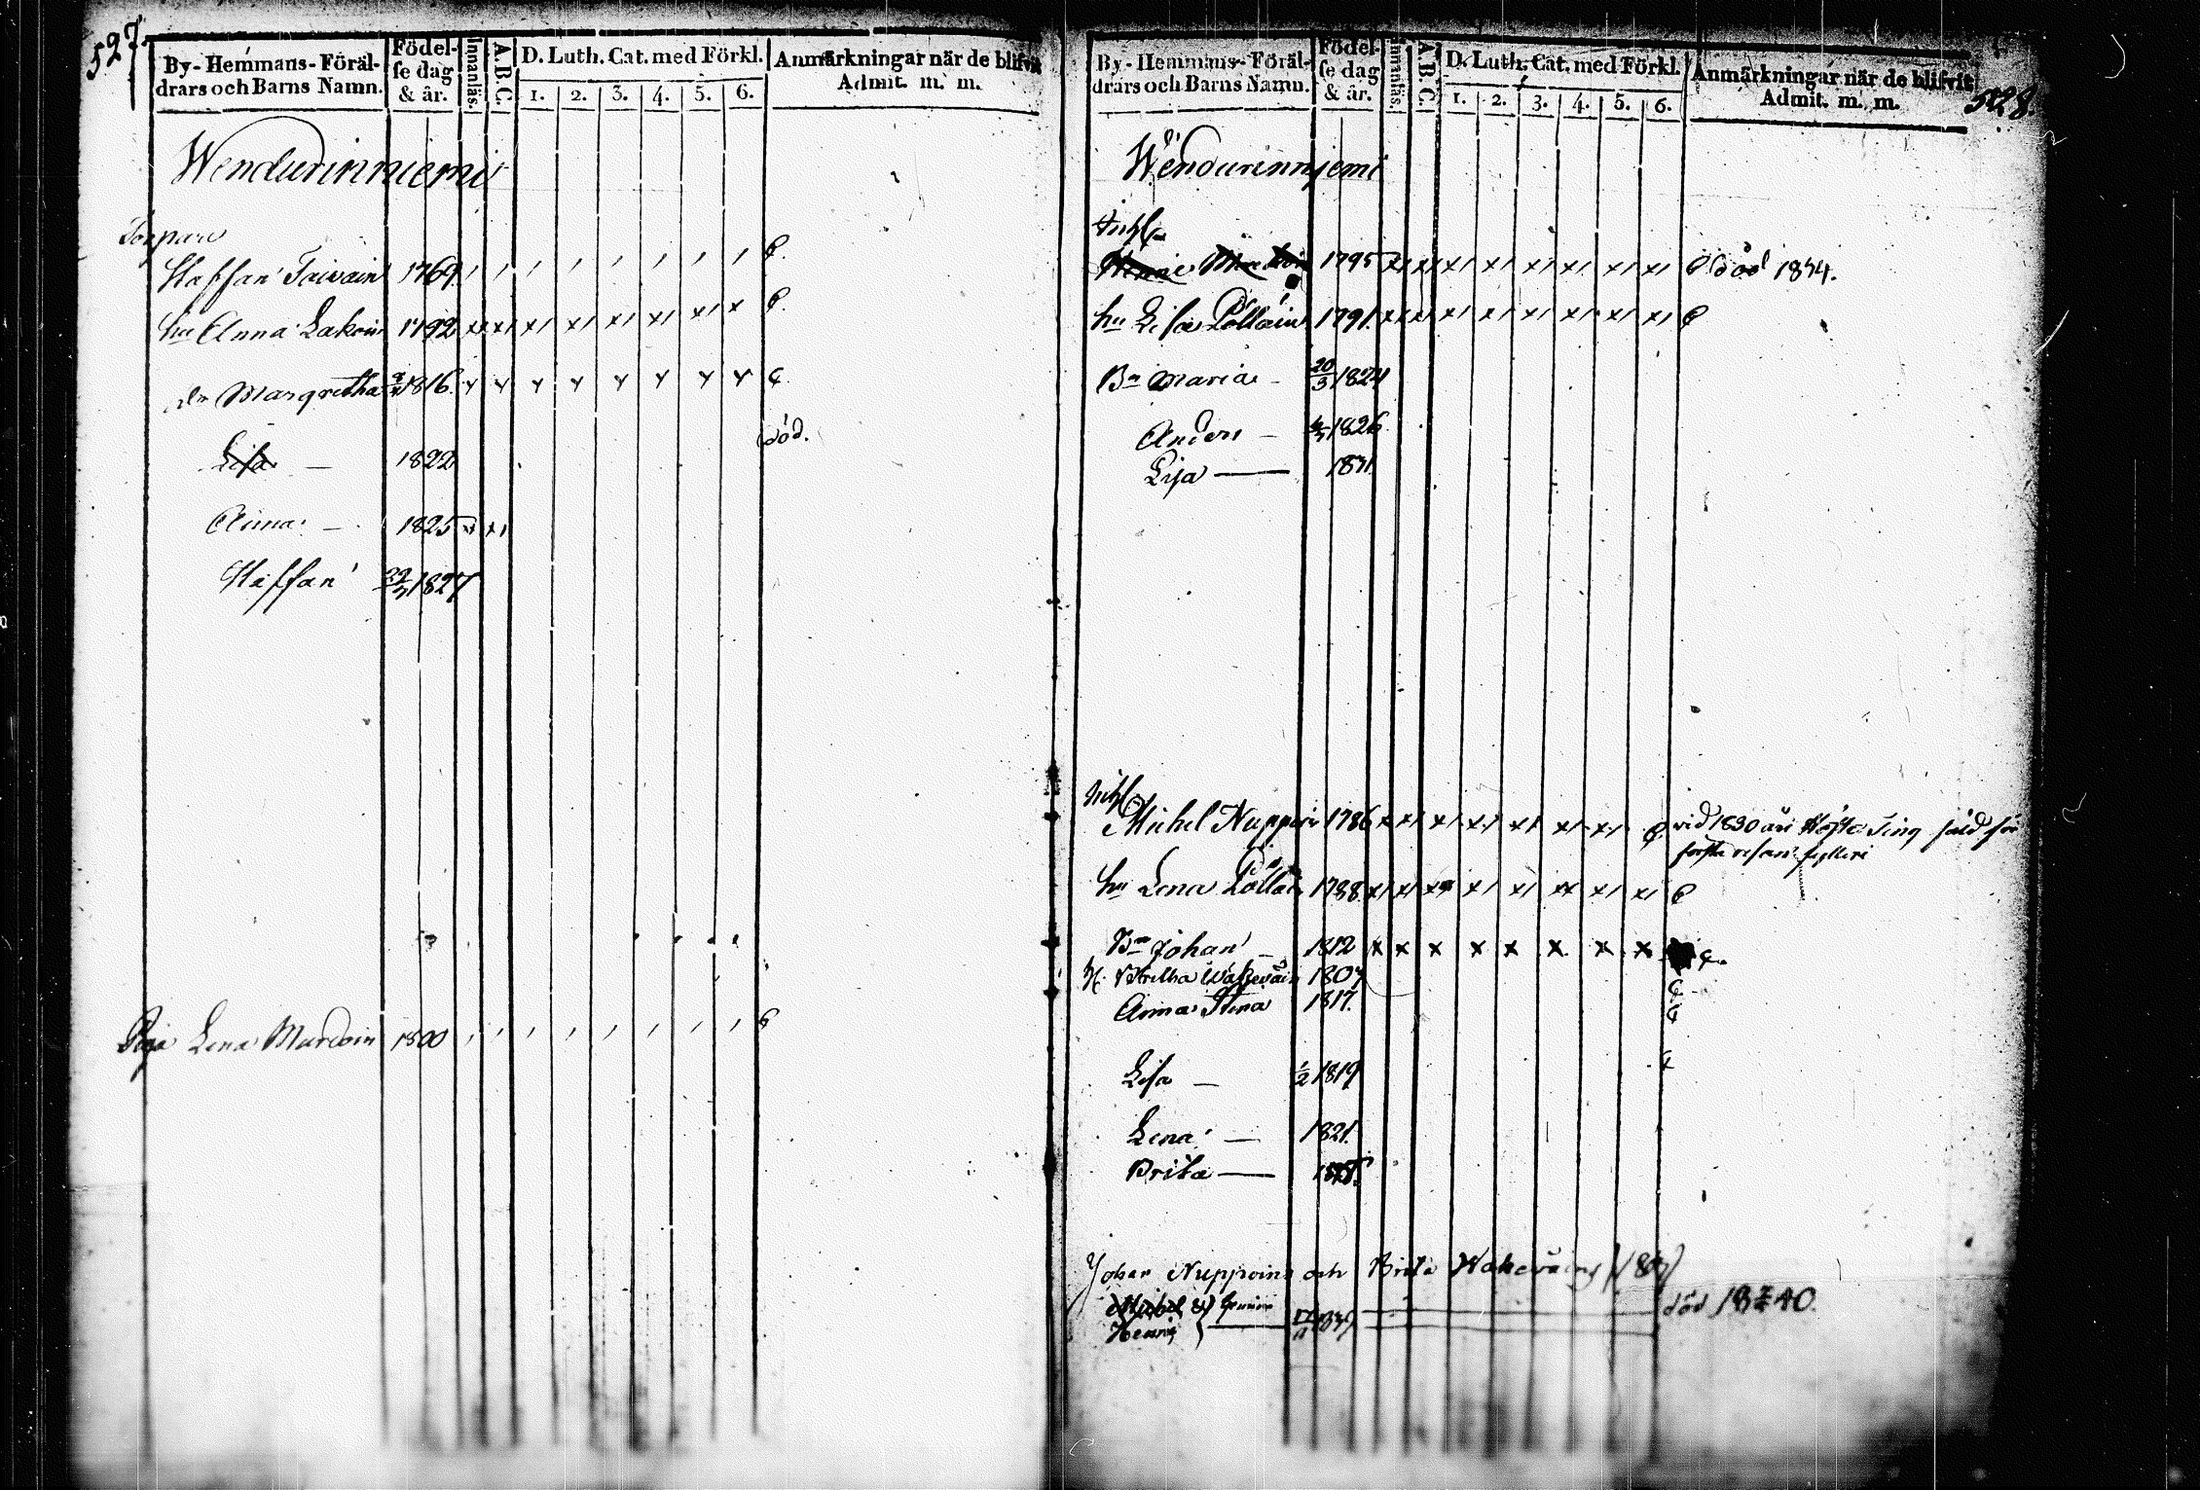 527.
By-Hemmans-Föräl-
drars och Barns Namn.
Födel-
se dag
& år.
Innanläs.
A.B.C.
D. Luth. Cat. med Förkl.
1. 2. 3. 4. 5. 6.
Anmärkningar när de blifvit
Admit. m. m.
Wendurinniemi
Torpare
Staffan Taivain 1769
hu Anna Lakoin 1792
dr Margretha 1816.
död.
Lisa — 1822
Anna — 1825
Staffan 1827
Piga Lena Mardoin 1800
528.
By-Hemmans-Föräl-
drars och Barns Namn.
Födel-
se dag
& år.
Innanläs.
A.B.C.
D. Luth. Cat. med Förkl.
1. 2. 3. 4. 5. 6.
Anmärkningar när de blifvit
Admit. m. m.
Wendurinnjemi
Inhl
1795 död 1834.
hu Lisa Pöllain 1791.
Bn Maria - 20/3 1824
Anders — 1826
Lisa — 1831.
Inhl
Michel Nuppoin 1786 vid 1830 års Höste Ting
första resan fylleri
hu Lena Pöllain 1788.
Bn Johan — 1812
H. 1807
Anna Stina 1817.
Lisa — 1/2 1819
Lena — 1821.
Brita —
Johan Nuppoins och Brita
Michel &
Henrik
död 1840.